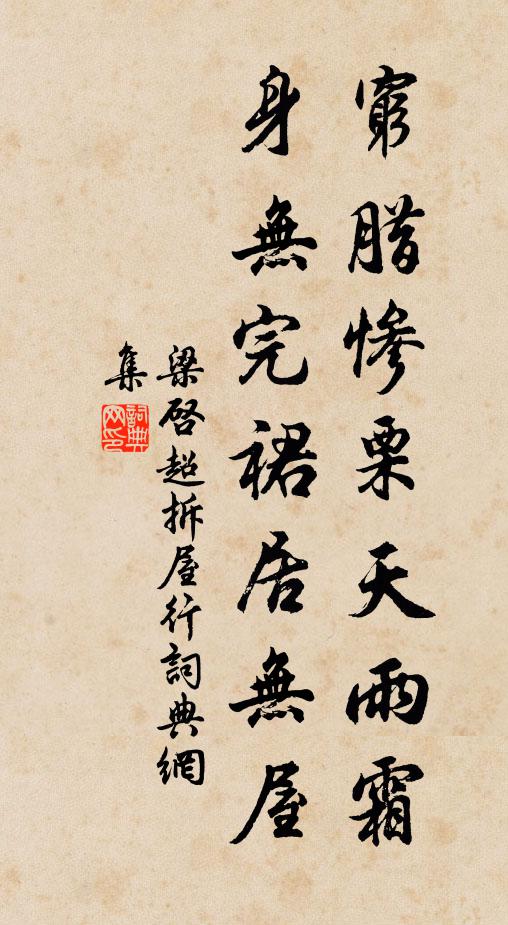 窮腊慘栗天雨霜
身無完裙居無屋
梁啓超拆屋行詞典網
集
詞典
网印